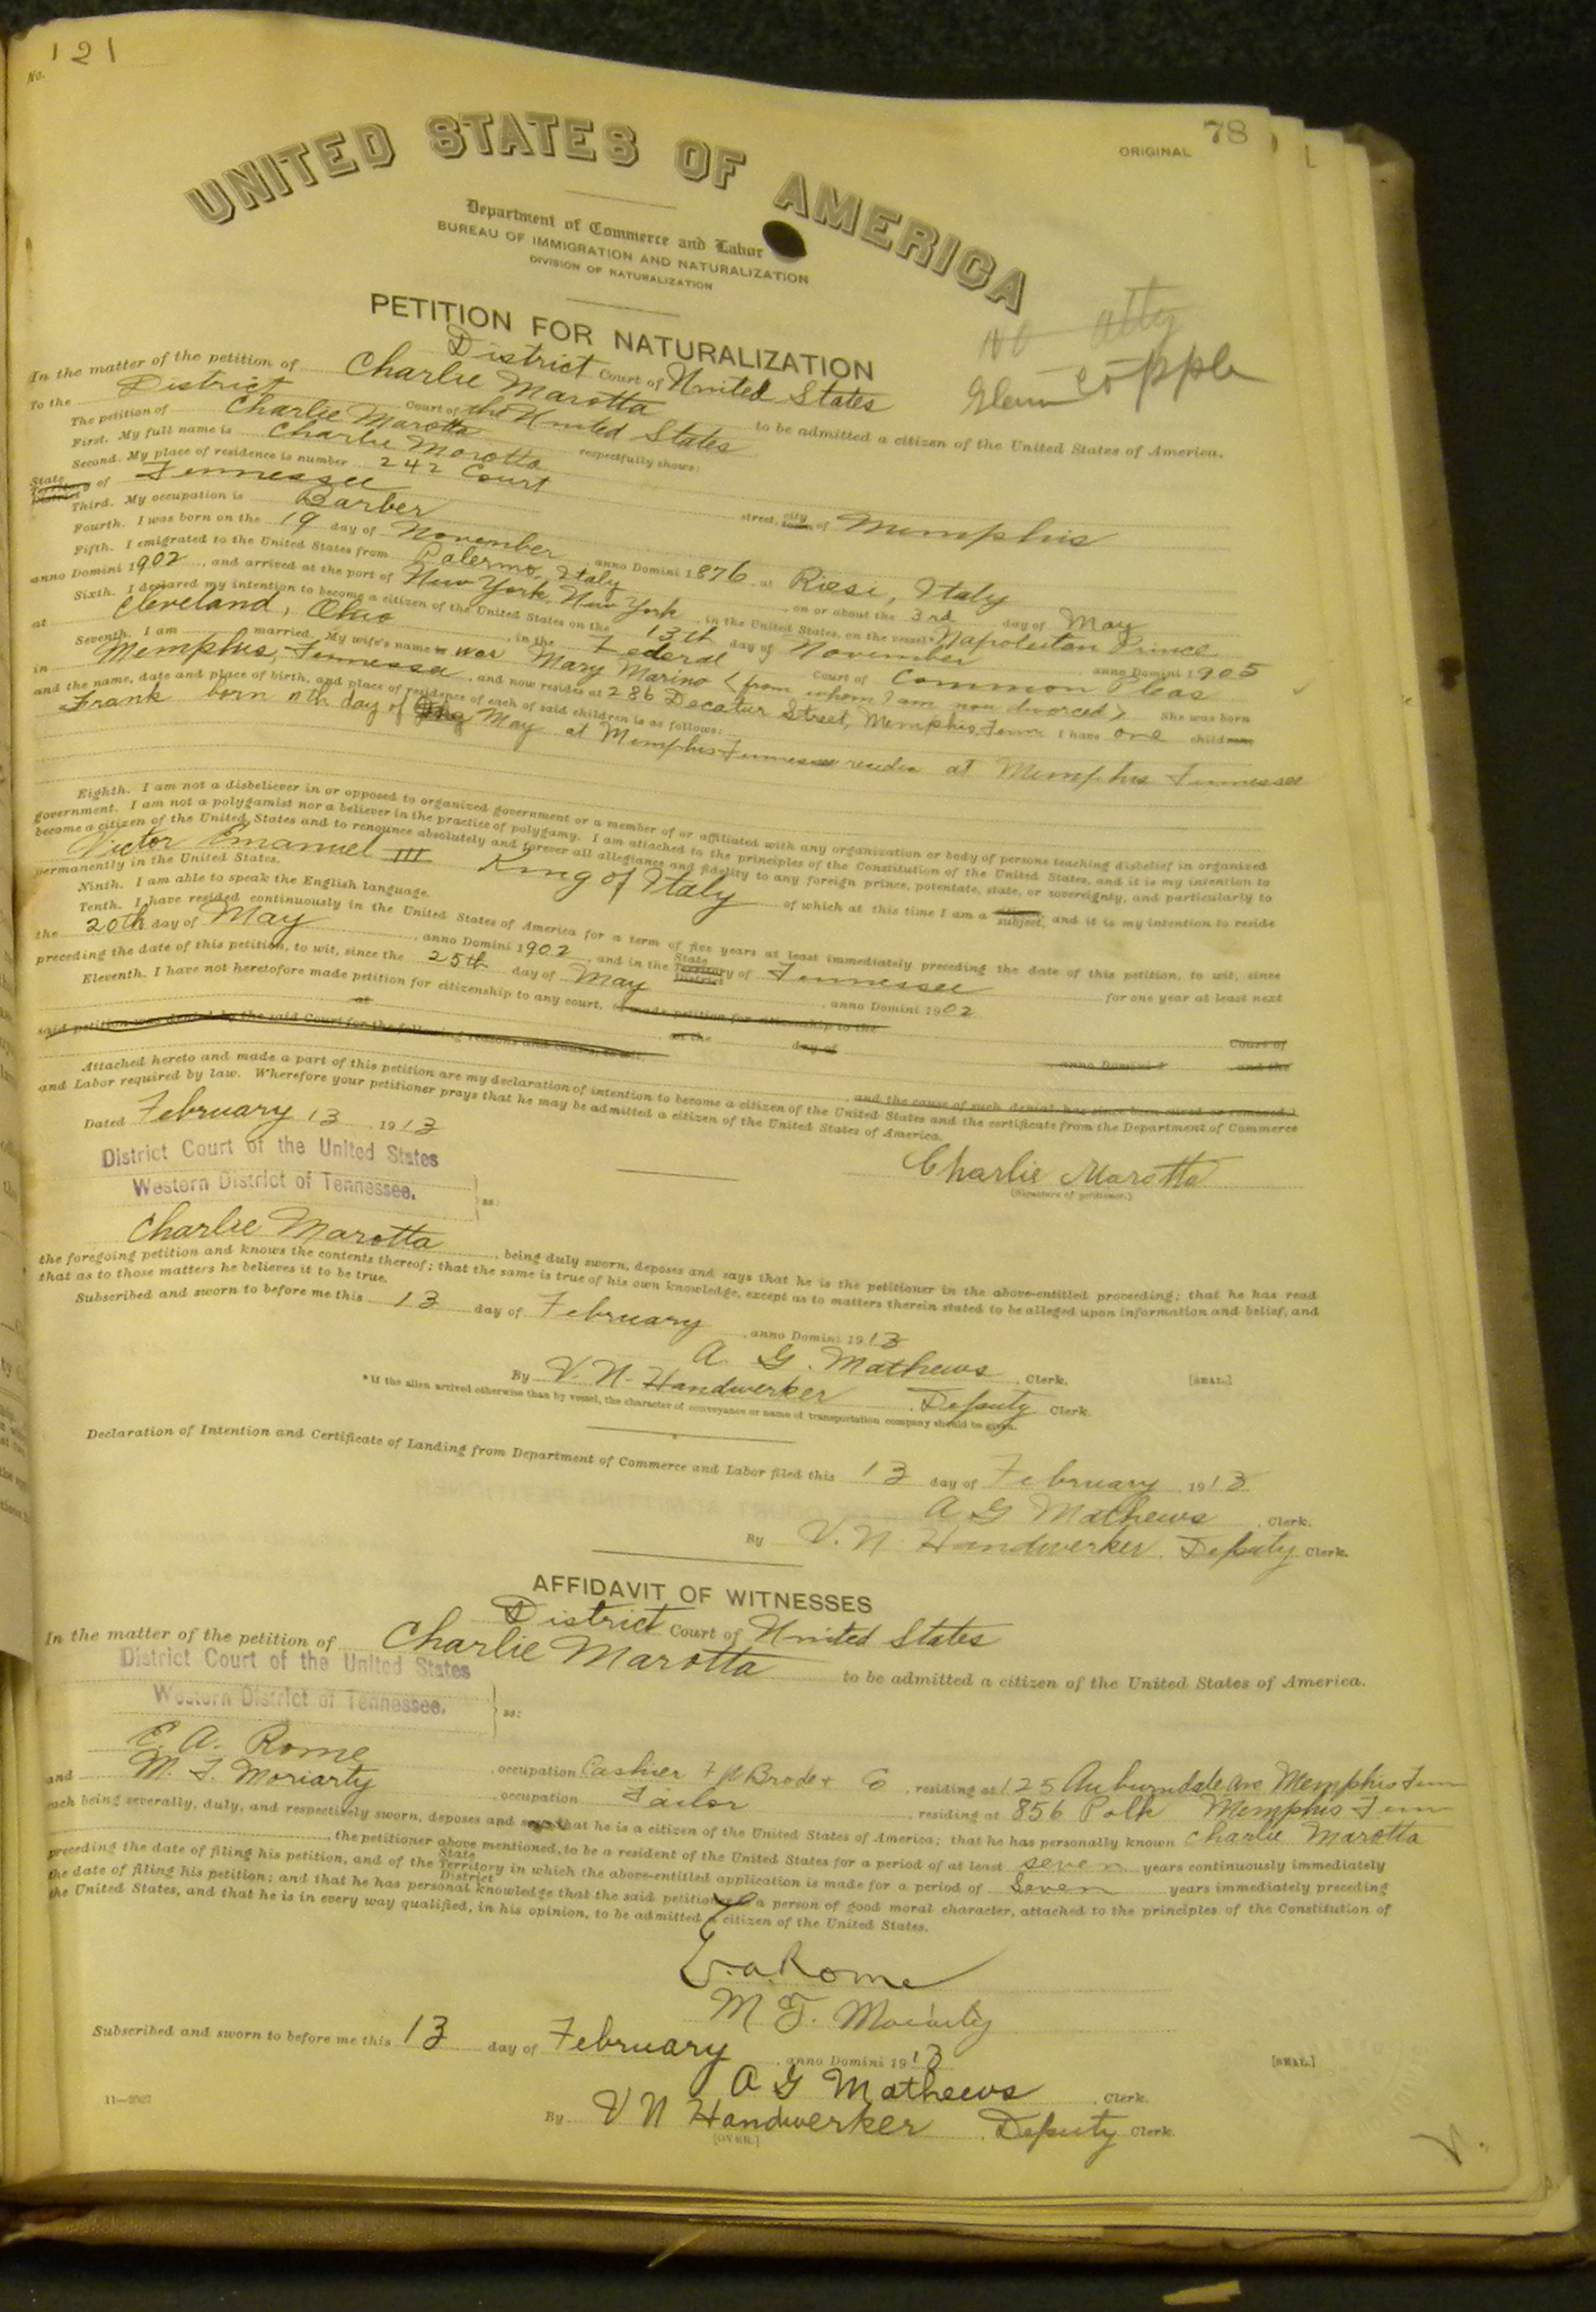 No. 121
78
ORIGINAL
UNITED STATES OF AMERICA
Department of Commerce and Labor
BUREAU OF IMMIGRATION AND NATURALIZATION
DIVISION OF NATURALIZATION
no atty
Glenn Copple
PETITION FOR NATURALIZATION
District Court of United States
In the matter of the petition of Charlie Marotta to be admitted a citizen of the United States of America.
To the District Court of the United States
The petition of Charlie Marotta respectfully shows:
First. My full name is Charlie Marotta
Second. My place of residence is number 242 Court street, city of Memphis
State Territory District of Tennessee
Third. My occupation is Barber
Fourth. I was born on the 19 day of November anno Domini 1876, at Riesi, Italy
Fifth. I emigrated to the United States from Palermo, Italy on or about the 3rd day of May
anno Domini 1902, and arrived at the port of New York, New York in the United States, on the vessel* Napoleitan Prince
Sixth. I declared my intention to become a citizen of the United States on the 13th day of November anno Domini 1905
at Cleveland, Ohio, in the Federal Court of Common Pleas
Seventh. I am married. My wife's name is was Mary Marino (from whom I am now divorced) She was born
in Memphis, Tennessee, and now resides at 286 Decatur Street, Memphis, Tenn I have one children
and the name, date and place of birth, and place of residence of each of said children is as follows:
Frank born 11th day of May at Memphis Tennessee resides at Memphis Tennessee
Eighth. I am not a disbeliever in or opposed to organized government or a member of or affiliated with any organization or body of persons teaching disbelief in organized
government. I am not a polygamist nor a believer in the practice of polygamy. I am attached to the principles of the Constitution of the United States, and it is my intention to
become a citizen of the United States and to renounce absolutely and forever all allegiance and fidelity to any foreign prince, potentate, state, or sovereignty, and particularly to
Victor Emanuel III King of Italy of which at this time I am a citizen subject, and it is my intention to reside
permanently in the United States.
Ninth. I am able to speak the English language.
Tenth. I have resided continuously in the United States of America for a term of five years at least immediately preceding the date of this petition, to wit, since
the 20th day of May, anno Domini 1902, and in the State Territory District of Tennessee for one year at least next
preceding the date of this petition, to wit, since the 25th day of May, anno Domini 1902
Eleventh. I have not heretofore made petition for citizenship to any court. (I made petition for citizenship to the Court of
at, on the day of anno Domini 1 and the
said petition was denied by the said Court for the following reasons and causes, to wit,
and the cause of such denial has since been cured or removed.)
Attached hereto and made a part of this petition are my declaration of intention to become a citizen of the United States and the certificate from the Department of Commerce
and Labor required by law. Wherefore your petitioner prays that he may be admitted a citizen of the United States of America.
Dated February 13 1913
Charlie Marotta
(Signature of petitioner.)
District Court of the United States
Western District of Tennessee. ss:
Charlie Marotta, being duly sworn, deposes and says that he is the petitioner in the above-entitled proceeding; that he has read
the foregoing petition and knows the contents thereof; that the same is true of his own knowledge, except as to matters therein stated to be alleged upon information and belief, and
that as to those matters he believes it to be true.
Subscribed and sworn to before me this 13 day of February, anno Domini 1913
A. G. Mathews, Clerk. [SEAL.]
By V. N. Handwerker, Deputy Clerk.
*If the alien arrived otherwise than by vessel, the character of conveyance or name of transportation company should be given.
Declaration of Intention and Certificate of Landing from Department of Commerce and Labor filed this 13 day of February, 1913
A G Mathews, Clerk.
By V. N. Handwerker, Deputy Clerk.
AFFIDAVIT OF WITNESSES
District Court of United States
In the matter of the petition of Charlie Marotta to be admitted a citizen of the United States of America.
District Court of the United States
Western District of Tennessee. ss:
E. A. Rome, occupation Cashier residing at 125 Auburndale Ave Memphis Tenn
and M. F. Moriarty, occupation Tailor, residing at 856 Polk Memphis Tenn
each being severally, duly, and respectively sworn, deposes and says that he is a citizen of the United States of America; that he has personally known Charlie Marotta
, the petitioner above mentioned, to be a resident of the United States for a period of at least seven years continuously immediately
preceding the date of filing his petition, and of the State Territory District in which the above-entitled application is made for a period of Seven years immediately preceding
the date of filing his petition; and that he has personal knowledge that the said petitioner is a person of good moral character, attached to the principles of the Constitution of
the United States, and that he is in every way qualified, in his opinion, to be admitted a citizen of the United States.
E. A. Rome
M F. Moriarty
Subscribed and sworn to before me this 13 day of February, anno Domini 1913
[SEAL.]
A G Mathews, Clerk.
11—2527
By V N Handwerker, Deputy Clerk.
[OVER.]